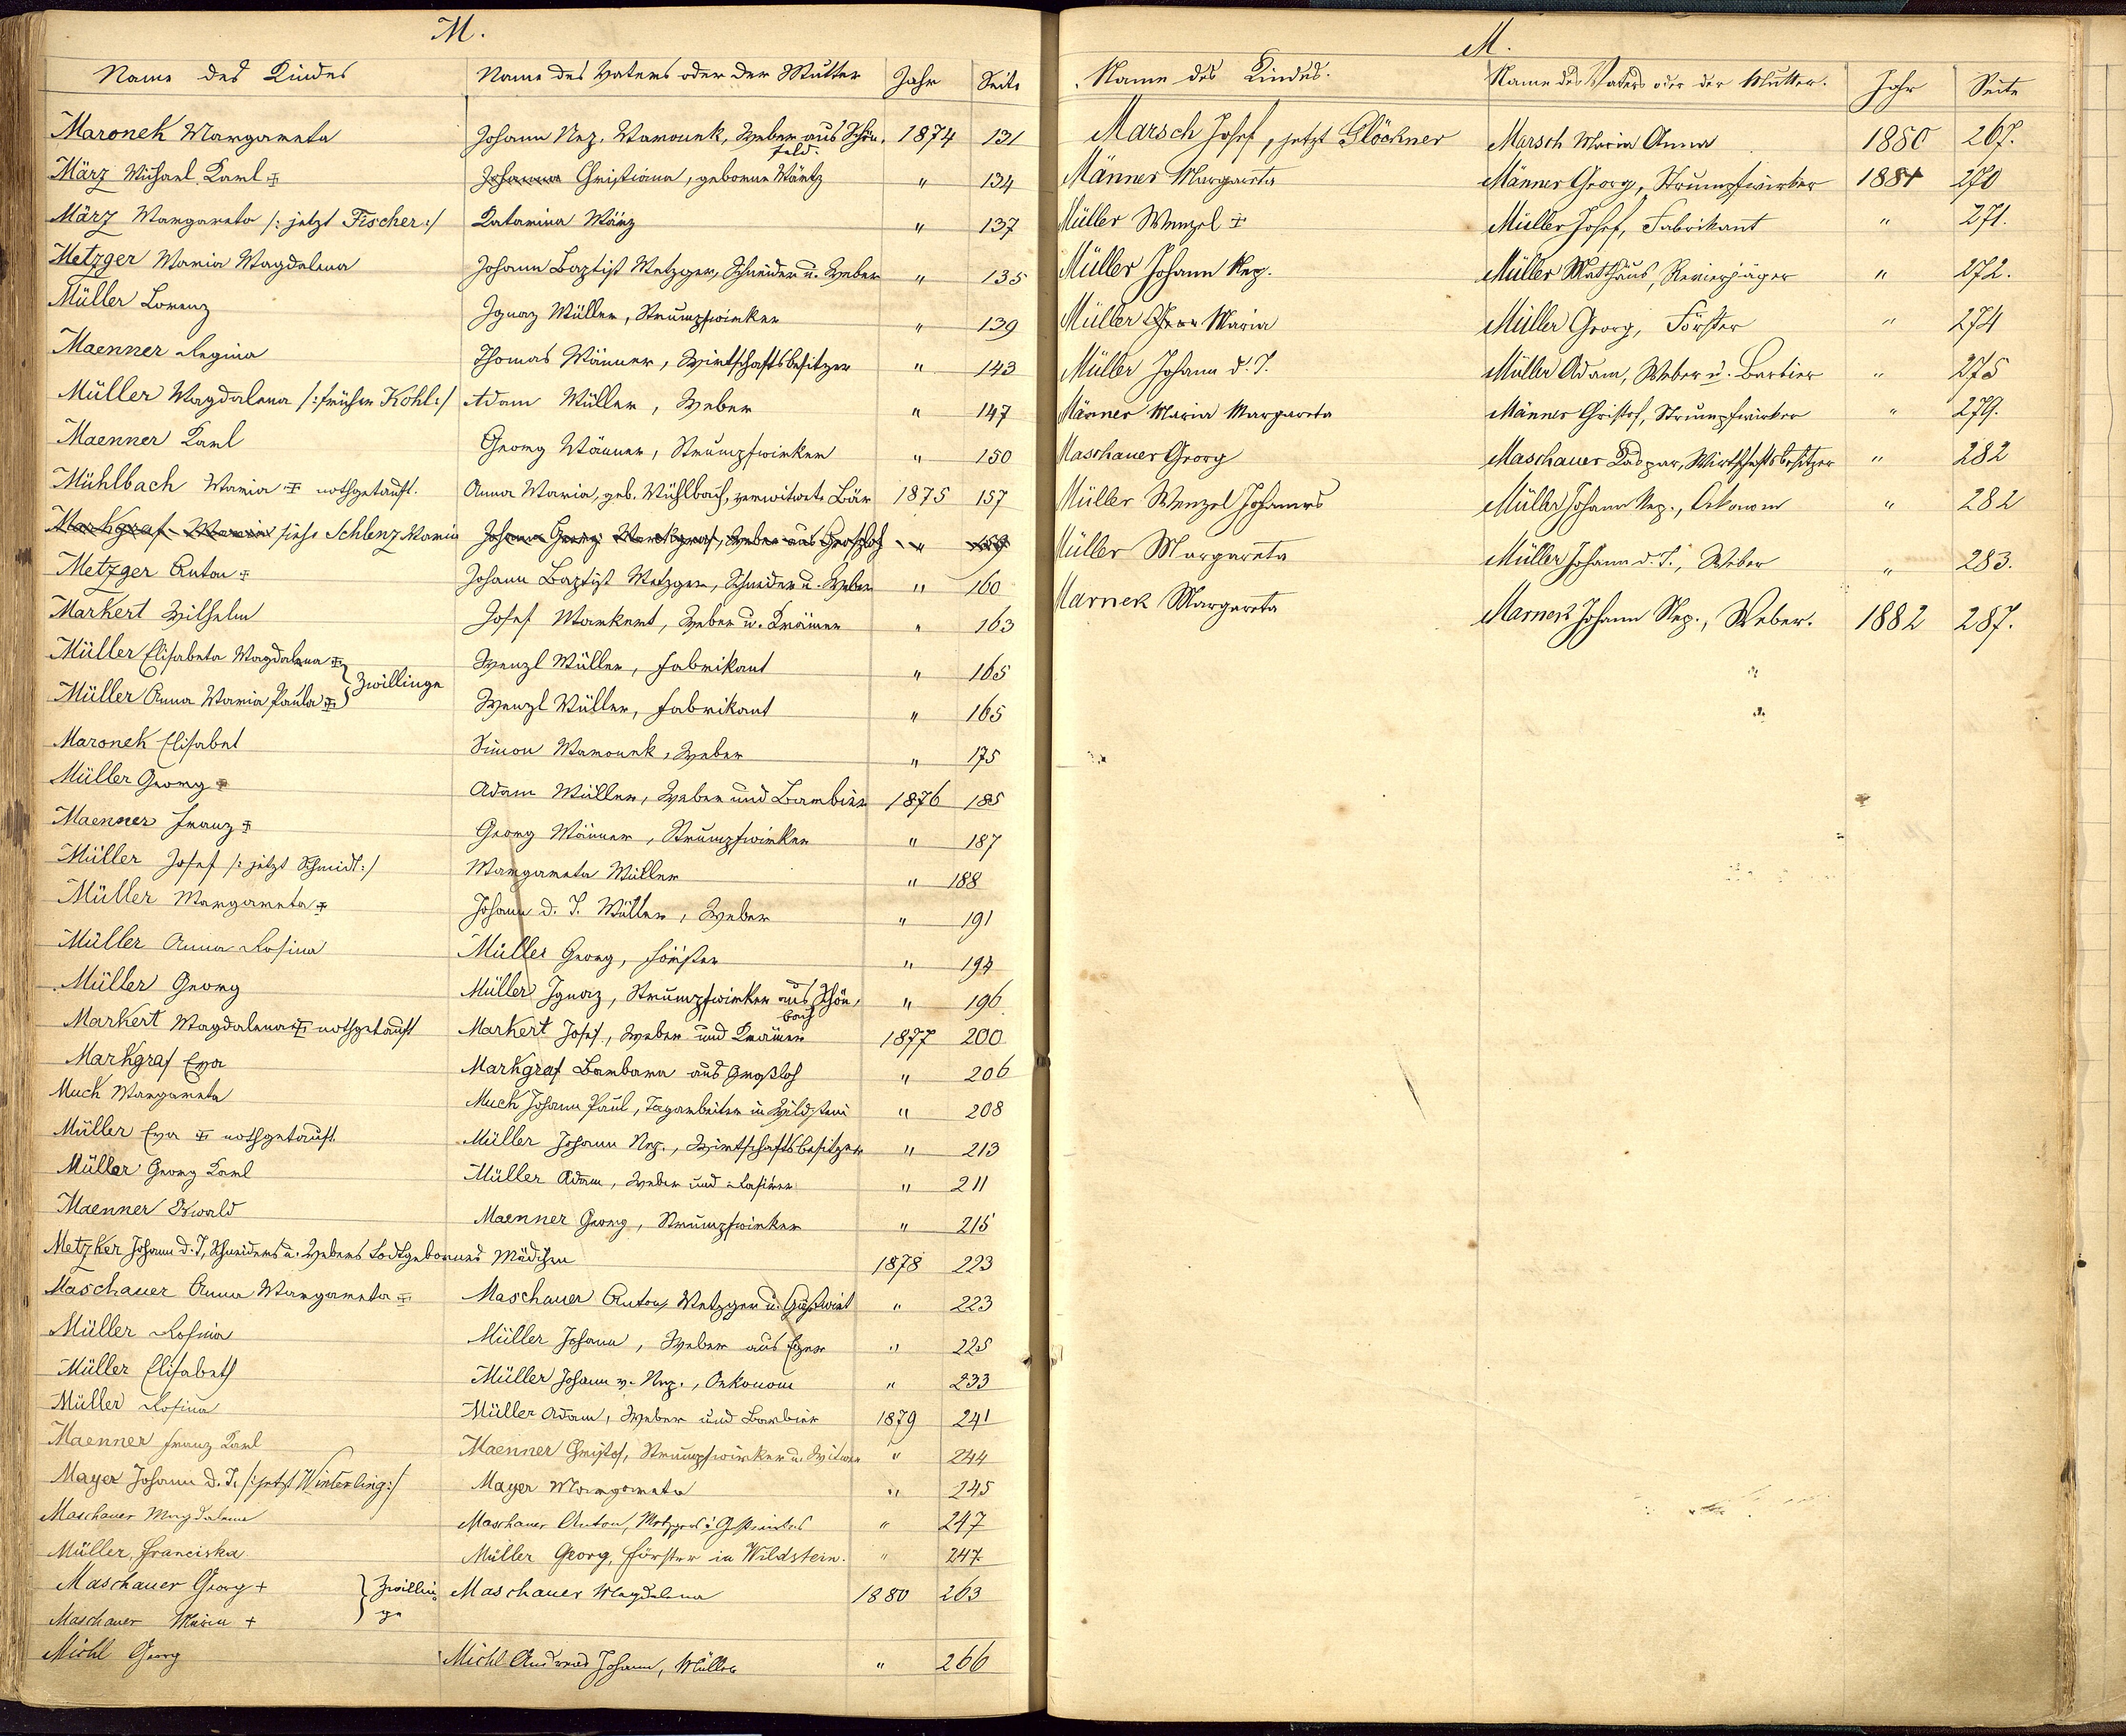 M.
Name des Kindes Name des Vaters oder der Mutter Jahr Seite
Maronek Margareta Johann Nep. Maronek, Weber aus Schön- 1874 131
feld.
März Michael Karl ± Johanna Christiana, geborne März " 134
März Margareta /: jetzt Fischer :/ Katarina März " 137
Metzger Maria Magdalena Johann Baptist Metzger, Schneider u. Weber " 135
Müller Lorenz Ignaz Müller, Strumpfwirker " 139
Maenner Regina Thomas Männer, Wirtschaftsbesitzer " 143
Müller Magdalena /: früher Kohl :/ Adam Müller, Weber " 147
Maenner Karl Georg Männer, Strumpfwirker " 150
Mühlbach Maria ± nothgetauft. Anna Maria, geb. Mühlbach, verwitwete Bär 1875 157
Markgraf Maria siehe Schlenz Maria Johann Georg Markgraf, Weber aus Großloh " 159
Metzger Anton ± Johann Baptist Metzger, Schneider u. Weber " 160
Markert Wilhelm Josef Markert, Weber u. Krämer " 163
Müller Elisabeta Magdalena ± Wenzl Müller, Fabrikant " 165
Zwillinge
Müller Anna Maria Paula ± Wenzl Müller, Fabrikant " 165
Maronek Elisabet Simon Maronek, Weber " 175
Müller Georg ± Adam Müller, Weber und Barbier 1876 185
Maenner Franz ± Georg Männer, Strumpfwirker " 187
Müller Josef /: jetzt Schmidt :/ Margareta Müller " 188
Müller Margareta ± Johann d. T. Müller, Weber " 191
Müller Anna Rosina Müller Georg, Förster " 194
Müller Georg Müller Ignaz, Strumpfwirker aus Schön- " 196
bach
Markert Magdalena ± nothgetauft Markert Josef, Weber und Krämer 1877 200
Markgraf Eva Markgraf Barbara aus Großloh " 206
Much Margareta Much Johann Paul, Tagarbeiter in Wildstein " 208
Müller Eva ± nothgetauft. Müller Johann Nep., Wirtschaftsbesitzer " 213
Müller Georg Karl Müller Adam, Weber und Rasirer " 211
Maenner Ewald Maenner Georg, Strumpfwirker " 215
Metzker Johann d. T, Schneiders u. Webers todtgebornes Mädchen 1878 223
Maschauer Anna Margareta ± Maschauer Anton, Metzger u. Gastwirt " 223
Müller Rosina Müller Johann, Weber aus Eger " 225
Müller Elisabeth Müller Johann v. Nep., Oekonom " 233
Müller Rosina Müller Adam, Weber und Barbier 1879 241
Maenner Franz Karl Maenner Christof, Strumpfwirker u. Witwer " 244
Mayer Johann d. T. /: jetzt Winterling :/ Mayer Margareta " 245
Maschauer Magdalena Maschauer Anton, Metzger u. Gastwirt " 247
Müller, Franciska Müller Georg, Förster in Wildstein. " 247
Maschauer Georg + Zwillin- Maschauer Magdalena 1880 263
ge
Maschauer Maria +
Michl Georg Michl Andreas Johann, Müller " 266
M.
Name des Kindes. Name des Vaters oder der Mutter. Jahr Seite
Marsch Josef, jetzt Glöckner Marsch Maria Anna 1880 267.
Männer Margareta Männer Georg, Strumpfwirker 1881 270
Müller Wenzel ± Müller Josef, Fabrikant " 271.
Müller Johann Nep. Müller Matthäus, Revierjäger " 272.
Müller Maria Müller Georg, Förster " 274
Müller Johann d. T. Müller Adam, Weber u. Barbier " 275
Männer Maria Margareta Männer Christof, Strumpfwirker " 279.
Maschauer Georg Maschauer Kaspar, Wirthschaftsbesitzer " 282
Müller Wenzel Johannes Müller Johann Nep., Oekonom " 282
Müller Margareta Müller Johann d. T., Weber " 283.
Marnek Margareta Marnek Johann Nep., Weber. 1882 287.